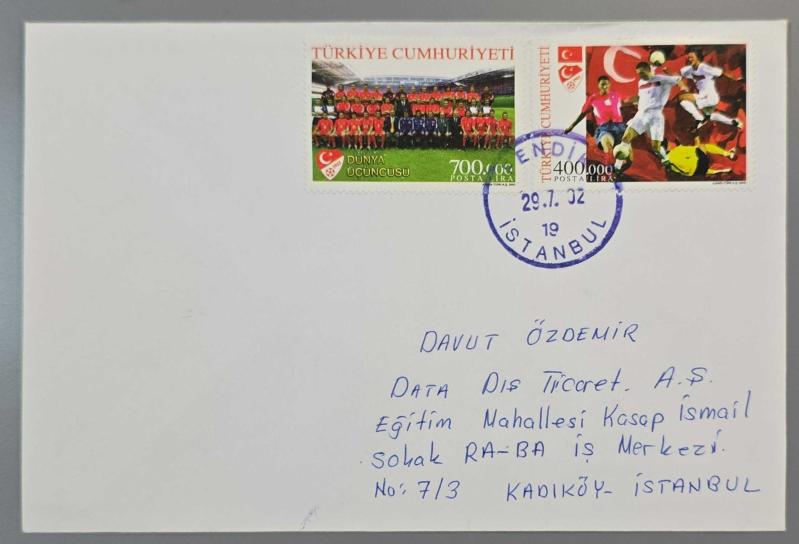 TÜRKİYE CUMHURİYETİ
DÜNYA
ÜÇÜNCÜSÜ
700.000
POSTA LİRA
TÜRKİYE CUMHURİYETİ
400.000
POSTA LİRA
29.7.02
19
İSTANBUL
DAVUT ÖZDEMİR
DATA DIŞ Ticaret. A.Ş.
Eğitim Mahallesi Kasap İsmail
Sokak RA-BA İş Merkezi.
No: 7/3 KADIKÖY- İSTANBUL